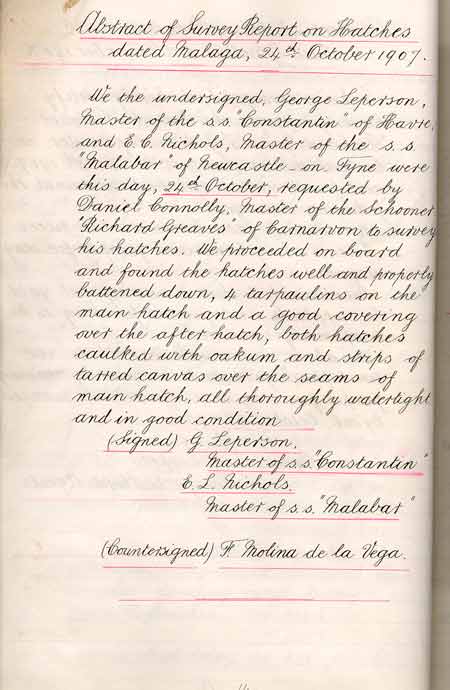 Abstract of Survey Report on Hatches
dated Malaga, 24th October 1907.
We the undersigned, George Leperson,
Master of the s.s. "Constantin" of Havre,
and E. C. Nichols, Master of the s.s
"Malabar" of Newcastle-on-Tyne were
this day, 24th October, requested by
Daniel Connolly, Master of the Schooner
"Richard Greaves" of Carnarvon to survey
his hatches. We proceeded on board
and found the hatches well and properly
battened down, 4 tarpaulins on the
main hatch and a good covering
over the after hatch, both hatches
caulked with oakum and strips of
tarred canvas over the seams of
main hatch, all thoroughly watertight
and in good condition
(Signed) G Leperson.
Master of s.s. "Constantin"
E. L. Nichols.
Master of s.s. "Malabar"
(Countersigned) F. Molina de la Vega.